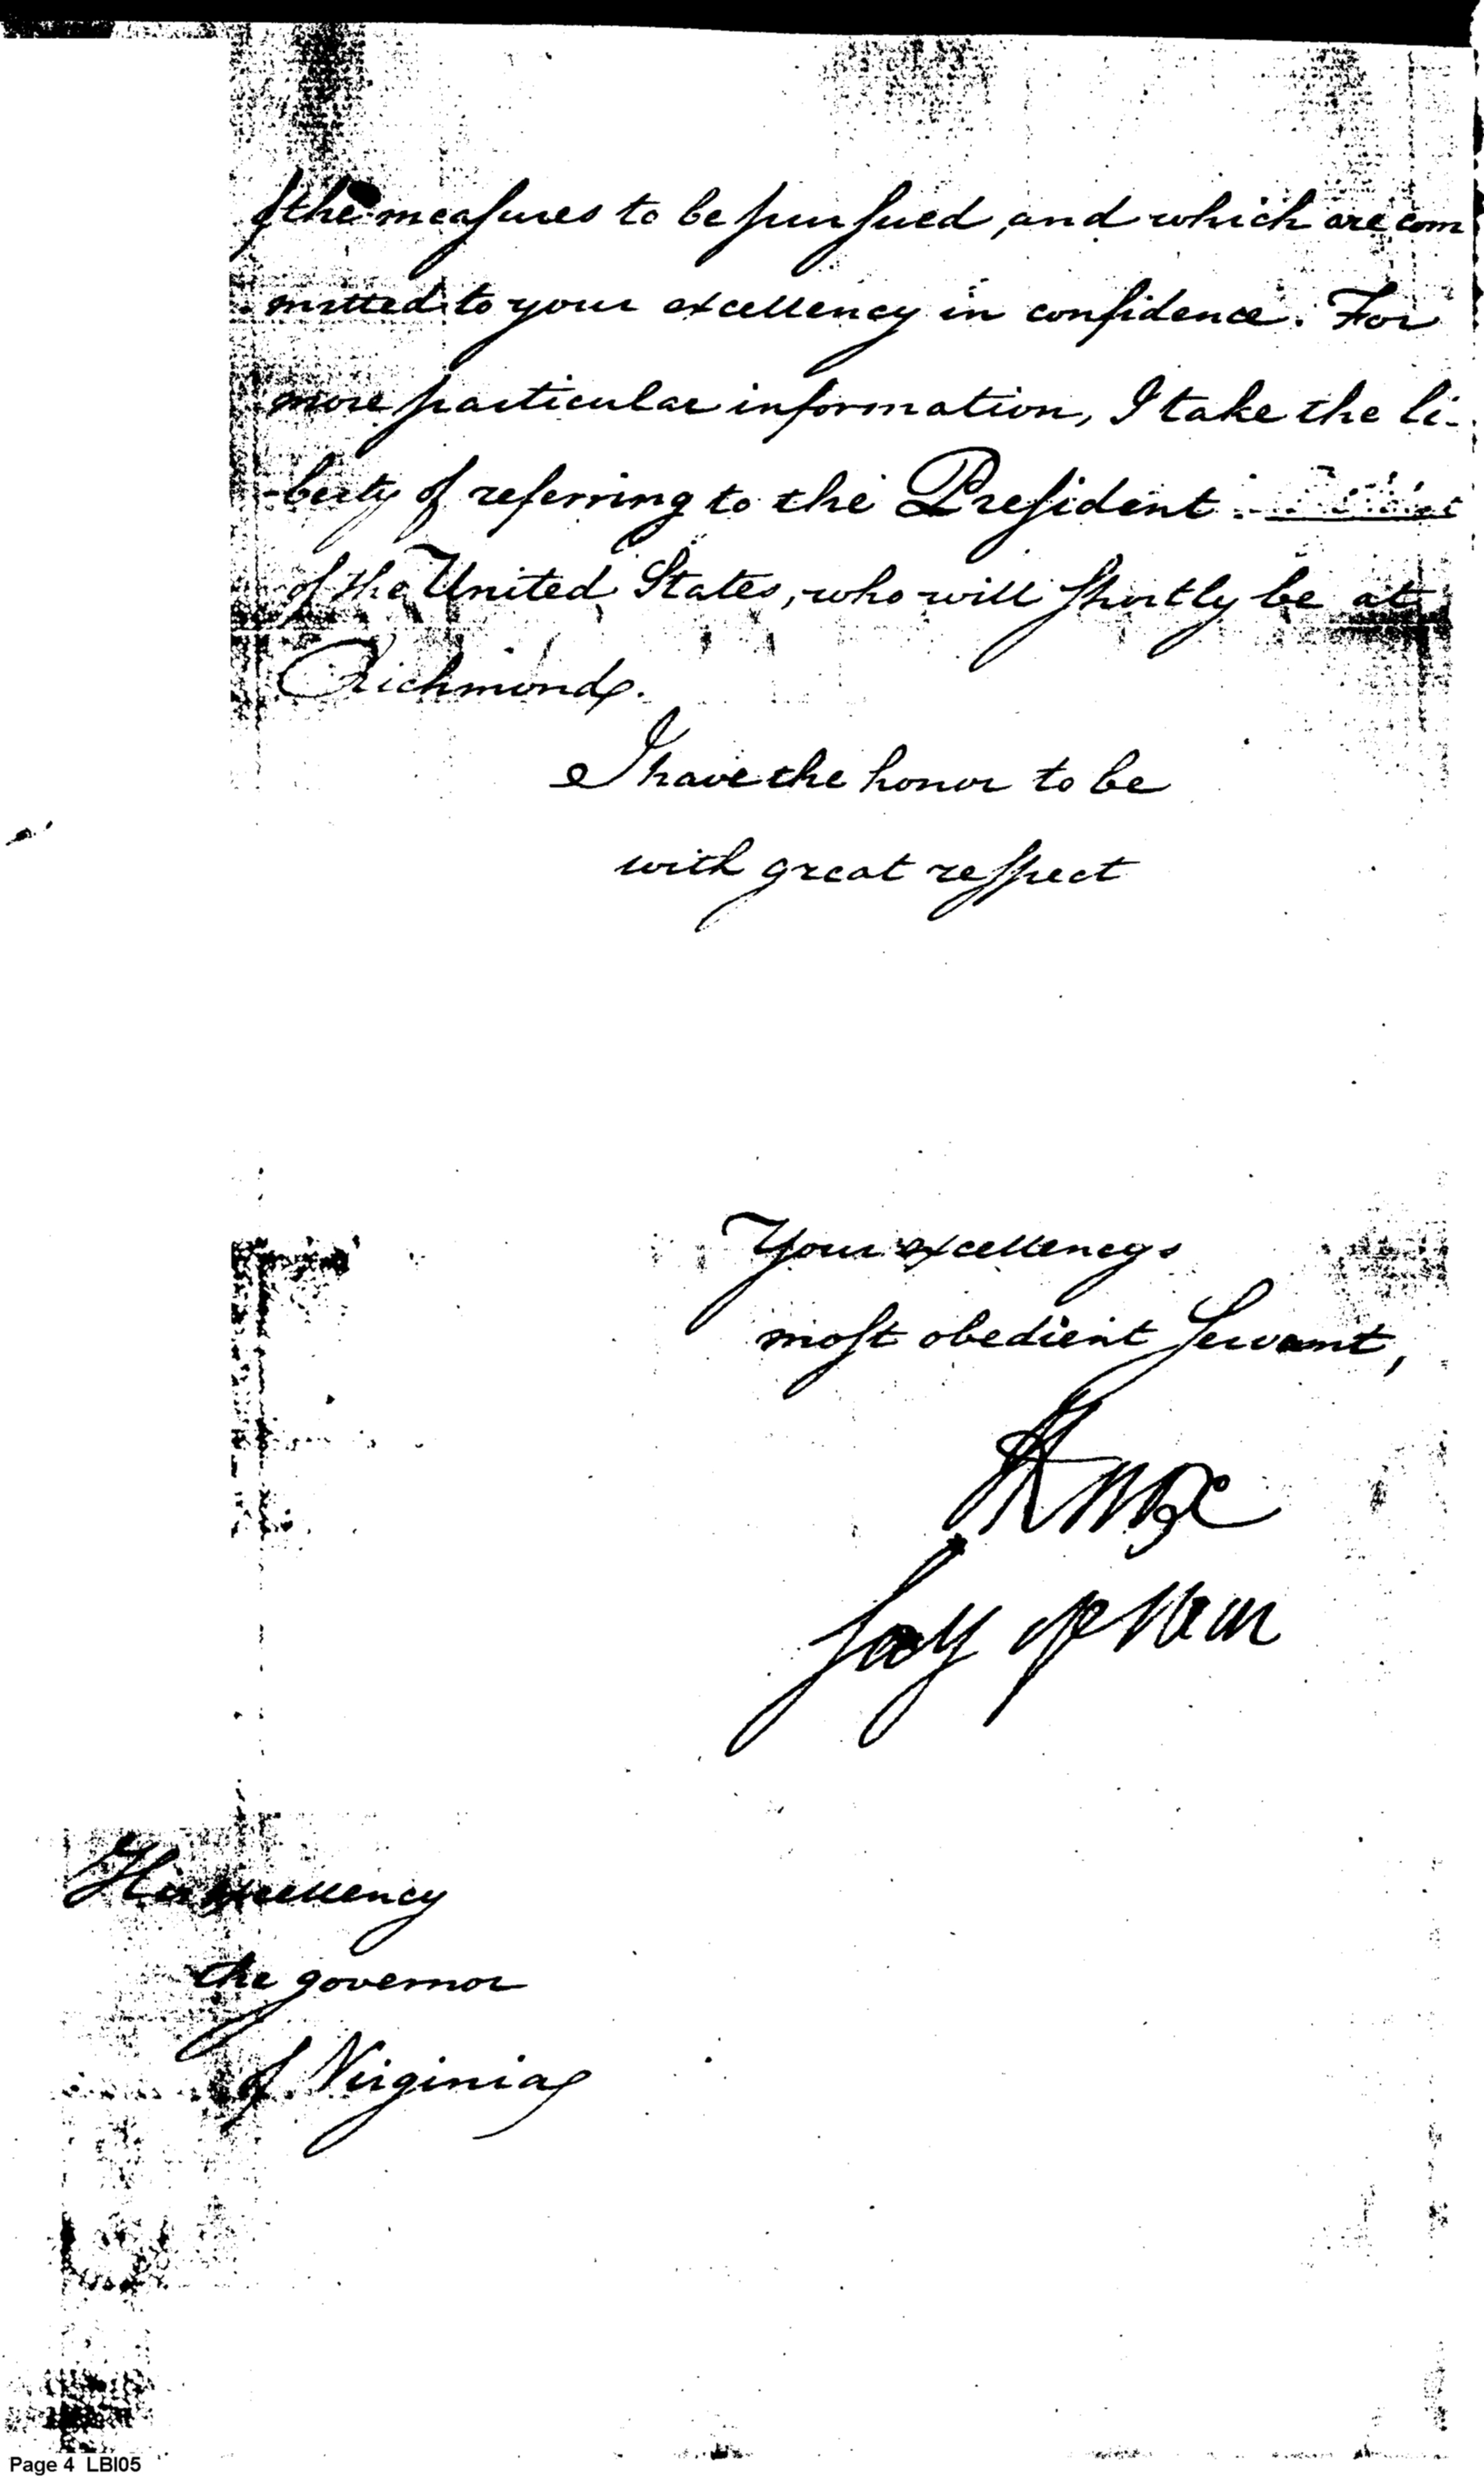 of the measures to be pursued, and which are com
mitted to your excellency in confidence. For
more particular information, I take the li-
-berty of referring to the President
of the United States, who will shortly be at
Richmond.
I have the honor to be
with great respect
Your excellencys
most obedient Servant,
HKnox
Secy of War
His excellency
the governor
of Virginia
Page 4 LBI05